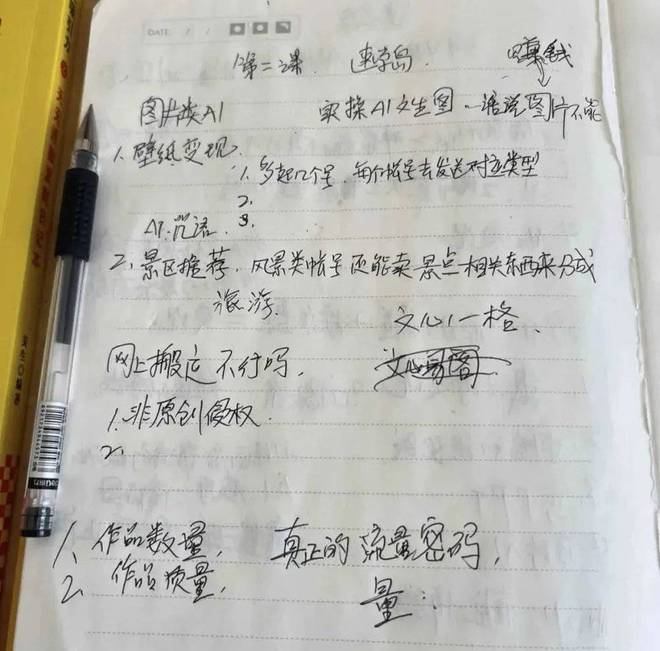 DATE / /
第二课. 速学岛 赚钱
图片类AI 实操AI文生图、 图片不能
1. 壁纸变现.
1. 多起几个号, 每个帐号去发送对应类型
2.
3.
AI.咒语.
2. 景区推荐. 风景类帐号还能卖景点相关东西来分成
旅游.
文心一格.
网上搬运不行吗.
1.非原创侵权.
2.
1、作品数量, 真正的流量密码,
2、作品质量,
量: